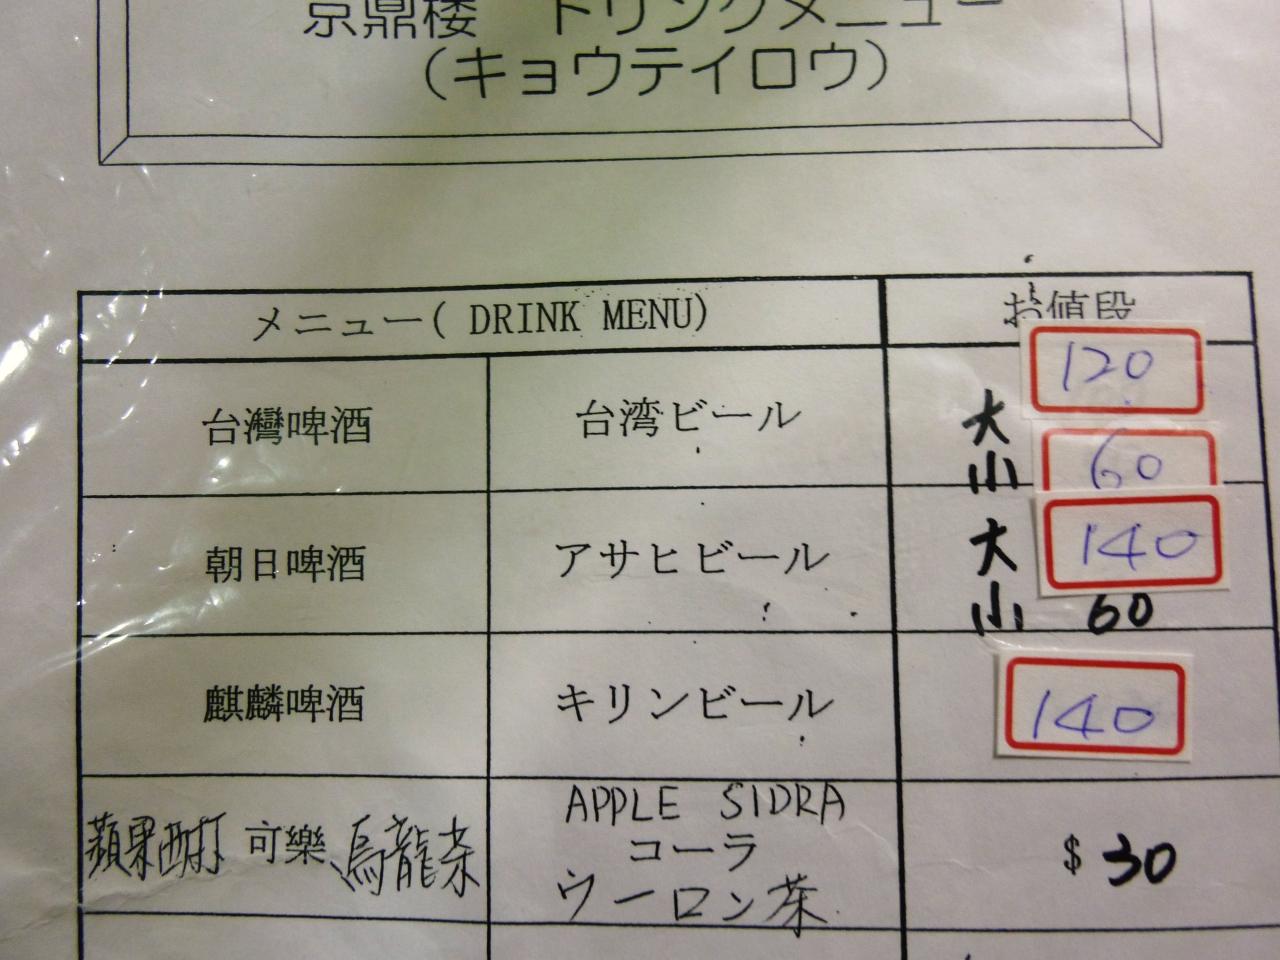 京鼎楼 ドリンクメニュー
(キョウテイロウ)
メニュー( DRINK MENU) お値段
台灣啤酒 台湾ビール 大 120
小 60
朝日啤酒 アサヒビール 大 140
小 60
麒麟啤酒 キリンビール 140
蘋果西打 可樂、烏龍茶 APPLE SIDRA
コーラ
ウーロン茶 $ 30